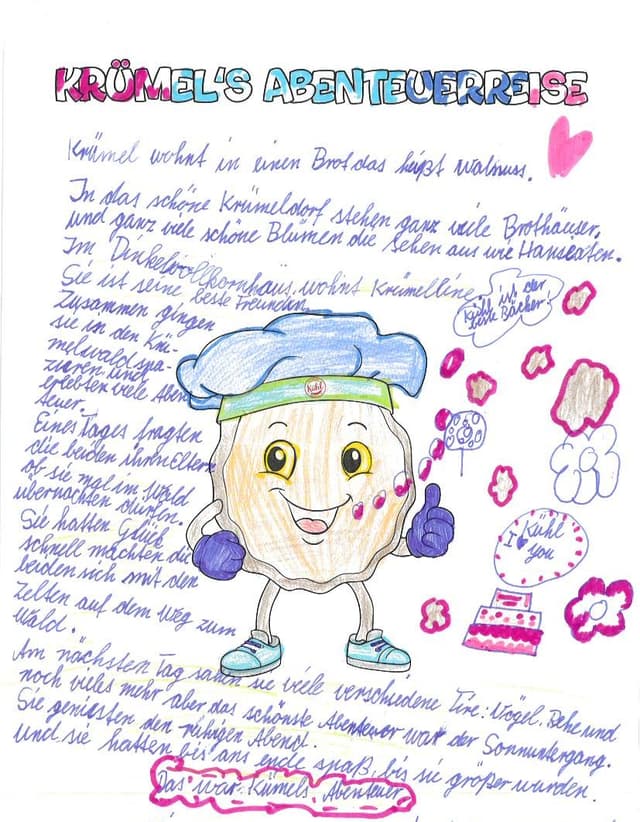 KRÜMEL'S ABENTEUERREISE
Krümel wohnt in einen Brot das heißt walnuss.
In das schöne Krümeldorf stehen ganz viele Brothäuser,
und ganz viele schöne Blumen die sehen aus wie Hanseaten.
Im Dinkelvollkornhaus, wohnt Krümelline
Sie ist seine beste Freundin.
Zusammen gingen
sie in den Krü-
melwald spa-
zieren und
erlebten viele Aben
teuer.
Eines Tages fragten
die beiden ihren Eltern
ob sie mal im Wald
übernachten durfen.
Sie hatten Glück
schnell machten die
beiden sich mit den
Zelten auf dem Weg zum
Wald.
Am nächsten Tag sahen sie viele verschiedene Tire: Vögel, Rehe und
noch vieles mehr aber das schönste Abenteuer war der Sonnuntergang.
Sie geniosten den ruhigen Abend.
und sie hatten bis ans ende spaß, bis sie größer wurden.
Das war Kümels Abenteuer
Kühl ist der
beste Bäcker!
Kühl
I Kühl
you